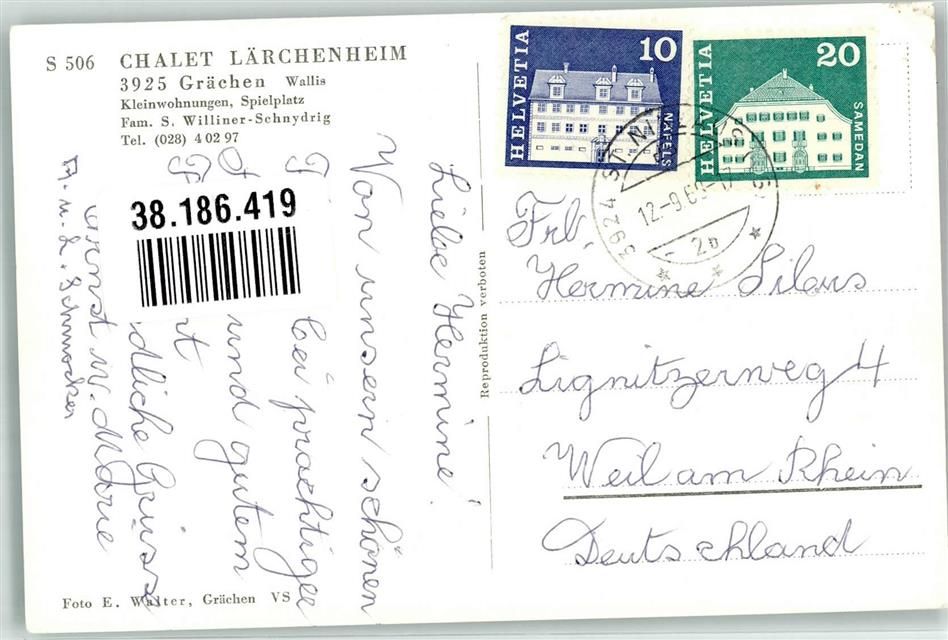 S 506 CHALET LÄRCHENHEIM
3925 Grächen Wallis
Kleinwohnungen, Spielplatz
Fam. S. Williner-Schnydrig
Tel. (028) 4 02 97
38.186.419
Liebe Hermine!
Von unsern schönen
bei prächtiger
und gutem
dliche Grüsse
Ernst u. Marie
Foto E. Walter, Grächen VS
Reproduktion verboten
HELVETIA 10 NÄFELS
HELVETIA 20 SAMEDAN
3924 ST. NIKLAUS
12-9.69-17
2b
Frl.
Hermine Silaus
Lignitzerweg 4
Weil am Rhein
Deutschland